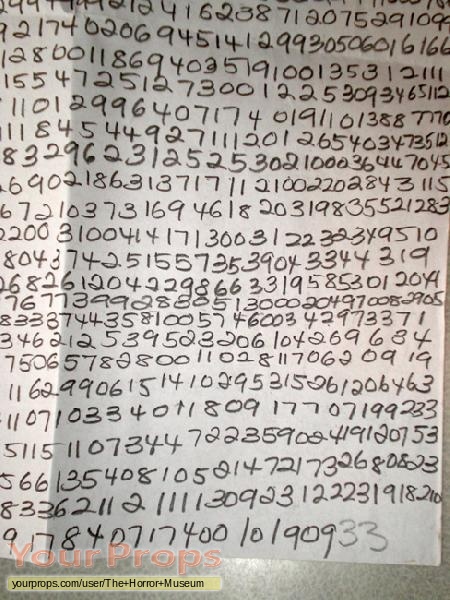 2416238712075291099
92174020694514129930506016166
12800118694035791001353 12111
155472512730012253093465112
1101299640717401911013887770
1118454492711120126540347 3512
832962312525302100036447045
69021863137171121002202843115
67210373169461820319835521283
2200310041417130031223234 9510
804374251557353904334 4319
26826120422986633195853012049
7677399283851300020497008 2905
83337443581005746003429 73371
3462125395232061042696 34
7506578280011028117062 0919
1162990615141029531526 1206463
11071033401180917707199233
51151107344722359024191 20753
56613540810521472173268 0823
83362112111130923122231 918210
9178407174001019093 3
Your Props
yourprops.com/user/The+Horror+Museum